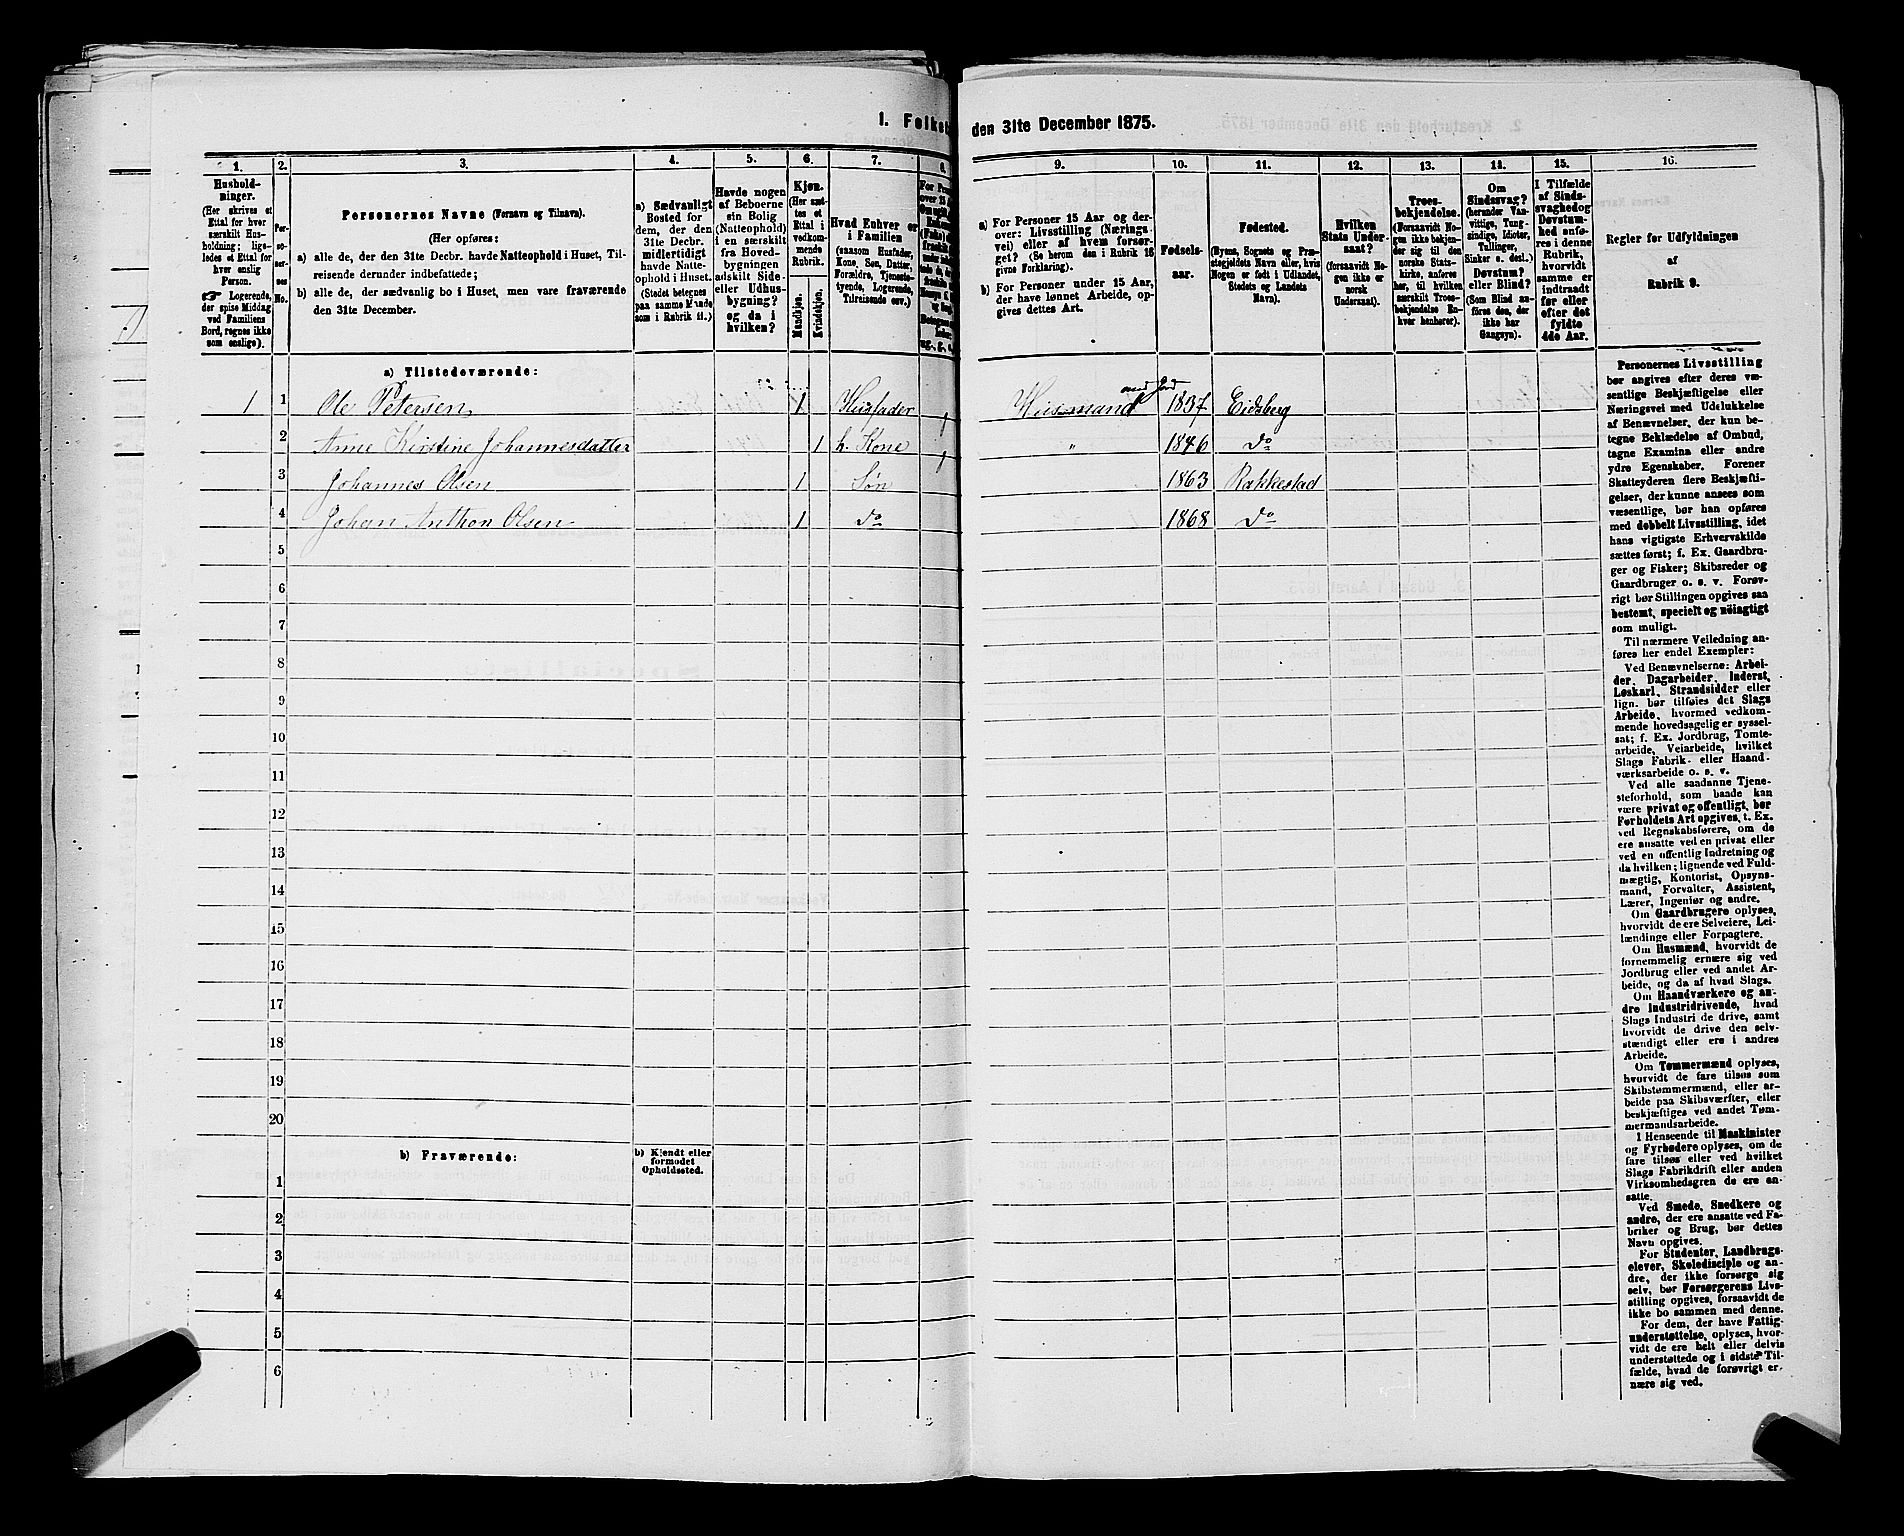 1. Folket
den 31te December 1875.
1. 2. 3. 4. 5. 6. 7. 8. 9. 10. 11. 12. 13. 14. 15. 16.
Hushold-
ninger.
(Her skrives et
Ettal for hver
særskilt Hus-
holdning; lige-
ledes et Ettal for
hver enslig
Person.
☛ Logerende,
der spise Middag
ved Familiens
Bord, regnes ikke
som enslige).
Per-
so-
ner-
nes
No.
Personernes Navne (Fornavn og Tilnavn).
(Her opføres:
a) alle de, der den 31te Decbr. havde Natteophold i Huset, Til-
reisende derunder indbefattede;
b) alle de, der sædvanlig bo i Huset, men vare fraværende
den 31te December.
a) Sædvanligt
Bosted for
dem, der den
31te Decbr.
midlertidigt
havde Natte-
ophold i Huset.
(Stedet betegnes
paa samme Maade
som i Rubrik 11.)
Havde nogen
af Beboerne
sin Bolig
(Natteophold)
i en særskilt
fra Hoved-
bygningen
adskilt Side-
eller Udhus-
bygning?
og da i
hvilken?
Kjøn.
(Her sæt-
tes et
Ettal i
vedkom-
mende
Rubrik.
Mandkjøn.
Kvindekjøn.
Hvad Enhver er
i Familien
(saasom Husfader,
Kone, Søn, Datter,
Forældre, Tjeneste-
tyende, Logerende,
Tilreisende osv.)
a) For Personer 15 Aar og der-
over: Livsstilling (Nærings-
vei) eller af hvem forsør-
get? (Se herom den i Rubrik 16
givne Forklaring).
b) For Personer under 15 Aar,
der have lønnet Arbeide, op-
gives dettes Art.
Fødsels-
aar.
Fødested.
(Byens, Sognets og Præ-
stegjeldets Navn eller, hvis
Nogen er født i Udlandet,
Stedets og Landets
Navn).
Hvilken
Stats Under-
saat?
(forsaavidt No-
gen ikke er
norsk
Undersaat).
Troes-
bekjendelse.
(Forsaavidt No-
gen ikke bekjen-
der sig til den
norske Stats-
kirke, anføres
her, til hvilken
særskilt Troes-
bekjendelse En-
hver henhører).
Om
Sindssvag?
(herunder Van-
vittige, Tung-
sindige, Idioter,
Tullinger,
Sinker o. desl.)
Døvstum?
eller Blind?
(Som Blind an-
føres den, der
ikke har
Gangsyn).
I Tilfælde
af Sinds-
svaghed og
Døvstum-
hed anfø-
res i denne
Rubrik,
hvorvidt
samme er
indtraadt
før eller
efter det
fyldte
4de Aar.
Regler for Udfyldningen
af
Rubrik 9.
a) Tilstedeværende:
1 1 Ole Petersen 1 Husfader Husmand med Jord 1837 Eidsberg
2 Anne Kirstine Johannesdatter 1 h. Kone " 1846 do
3 Johannes Olsen 1 Søn 1863 Rakkestad
4 Johan Anthon Olsen 1 do 1868 do
5
6
7
8
9
10
11
12
13
14
15
16
17
18
19
20
b) Fraværende:
b) Kjendt eller
formodet
Opholdssted.
1
2
3
4
5
6
Personernes Livsstilling
bør angives efter deres væ-
sentlige Beskjæftigelse eller
Næringsvei med Udelukkelse
af Benævnelser, der kun be-
tegne Beklædelse af Ombud,
tagne Examina eller andre
ydre Egenskaber. Forener
Skatteyderen flere Beskjæfti-
gelser, der kunne ansees som
væsentlige, bør han opføres
med dobbelt Livsstilling, idet
hans vigtigste Erhvervskilde
sættes først; f. Ex. Gaardbru-
ger og Fisker; Skibsreder og
Gaardbruger o. s. v. Forøv-
rigt bør Stillingen opgives saa
bestemt, specielt og nøiagtigt
som muligt.
Til nærmere Veiledning an-
føres her endel Exempler:
Ved Benævnelserne: Arbei-
der, Dagarbeider, Inderst,
Løskarl, Strandsidder eller
lign. bør tilføies det Slags
Arbeide, hvormed vedkom-
mende hovedsagelig er syssel-
sat; f. Ex. Jordbrug, Tomte-
arbeide, Veiarbeide, hvilket
Slags Fabrik- eller Haand-
værksarbeide o. s. v.
Ved alle saadanne Tjene-
steforhold, som baade kan
være privat og offentligt, bør
Forholdets Art opgives, t. Ex.
ved Regnskabsførere, om de
ere ansatte ved en privat eller
ved en offentlig Indretning og
da hvilken; lignende ved Fuld-
mægtig, Kontorist, Opsyns-
mand, Forvalter, Assistent,
Lærer, Ingeniør og andre.
Om Gaardbrugere oplyses,
hvorvidt de ere Selveiere, Lei-
lændinge eller Forpagtere.
Om Husmænd, hvorvidt de
fornemmelig ernære sig ved
Jordbrug eller ved andet Ar-
beide, og da af hvad Slags.
Om Haandværkere og an-
dre Industridrivende, hvad
Slags Industri de drive, samt
hvorvidt de drive den selv-
stændigt eller ere i andres
Arbeide.
Om Tømmermænd oplyses,
hvorvidt de fare tilsøs som
Skibstømmermænd, eller ar-
beide paa Skibsværfter, eller
beskjæftiges ved andet Tøm-
mermandsarbeide.
I Henseende til Maskinister
og Fyrbødere oplyses, om de
fare tilsøs eller ved hvilket
Slags Fabrikdrift eller anden
Virksomhedsgren de ere an-
satte.
Ved Smede, Snedkere og
andre, der ere ansatte ved Fa-
briker og Brug, bør dettes
Navn opgives.
For Studenter, Landbrugs-
elever, Skoledisciple og an-
dre, der ikke forsørge sig
selv, bør Forsørgerens Livs-
stilling opgives, forsaavidt de
ikke bo sammen med denne.
For dem, der have Fattig-
understøttelse, oplyses, hvor-
vidt de ere helt eller delvis
understøttede og i sidste Til-
fælde, hvad de forøvrigt er-
nære sig ved.